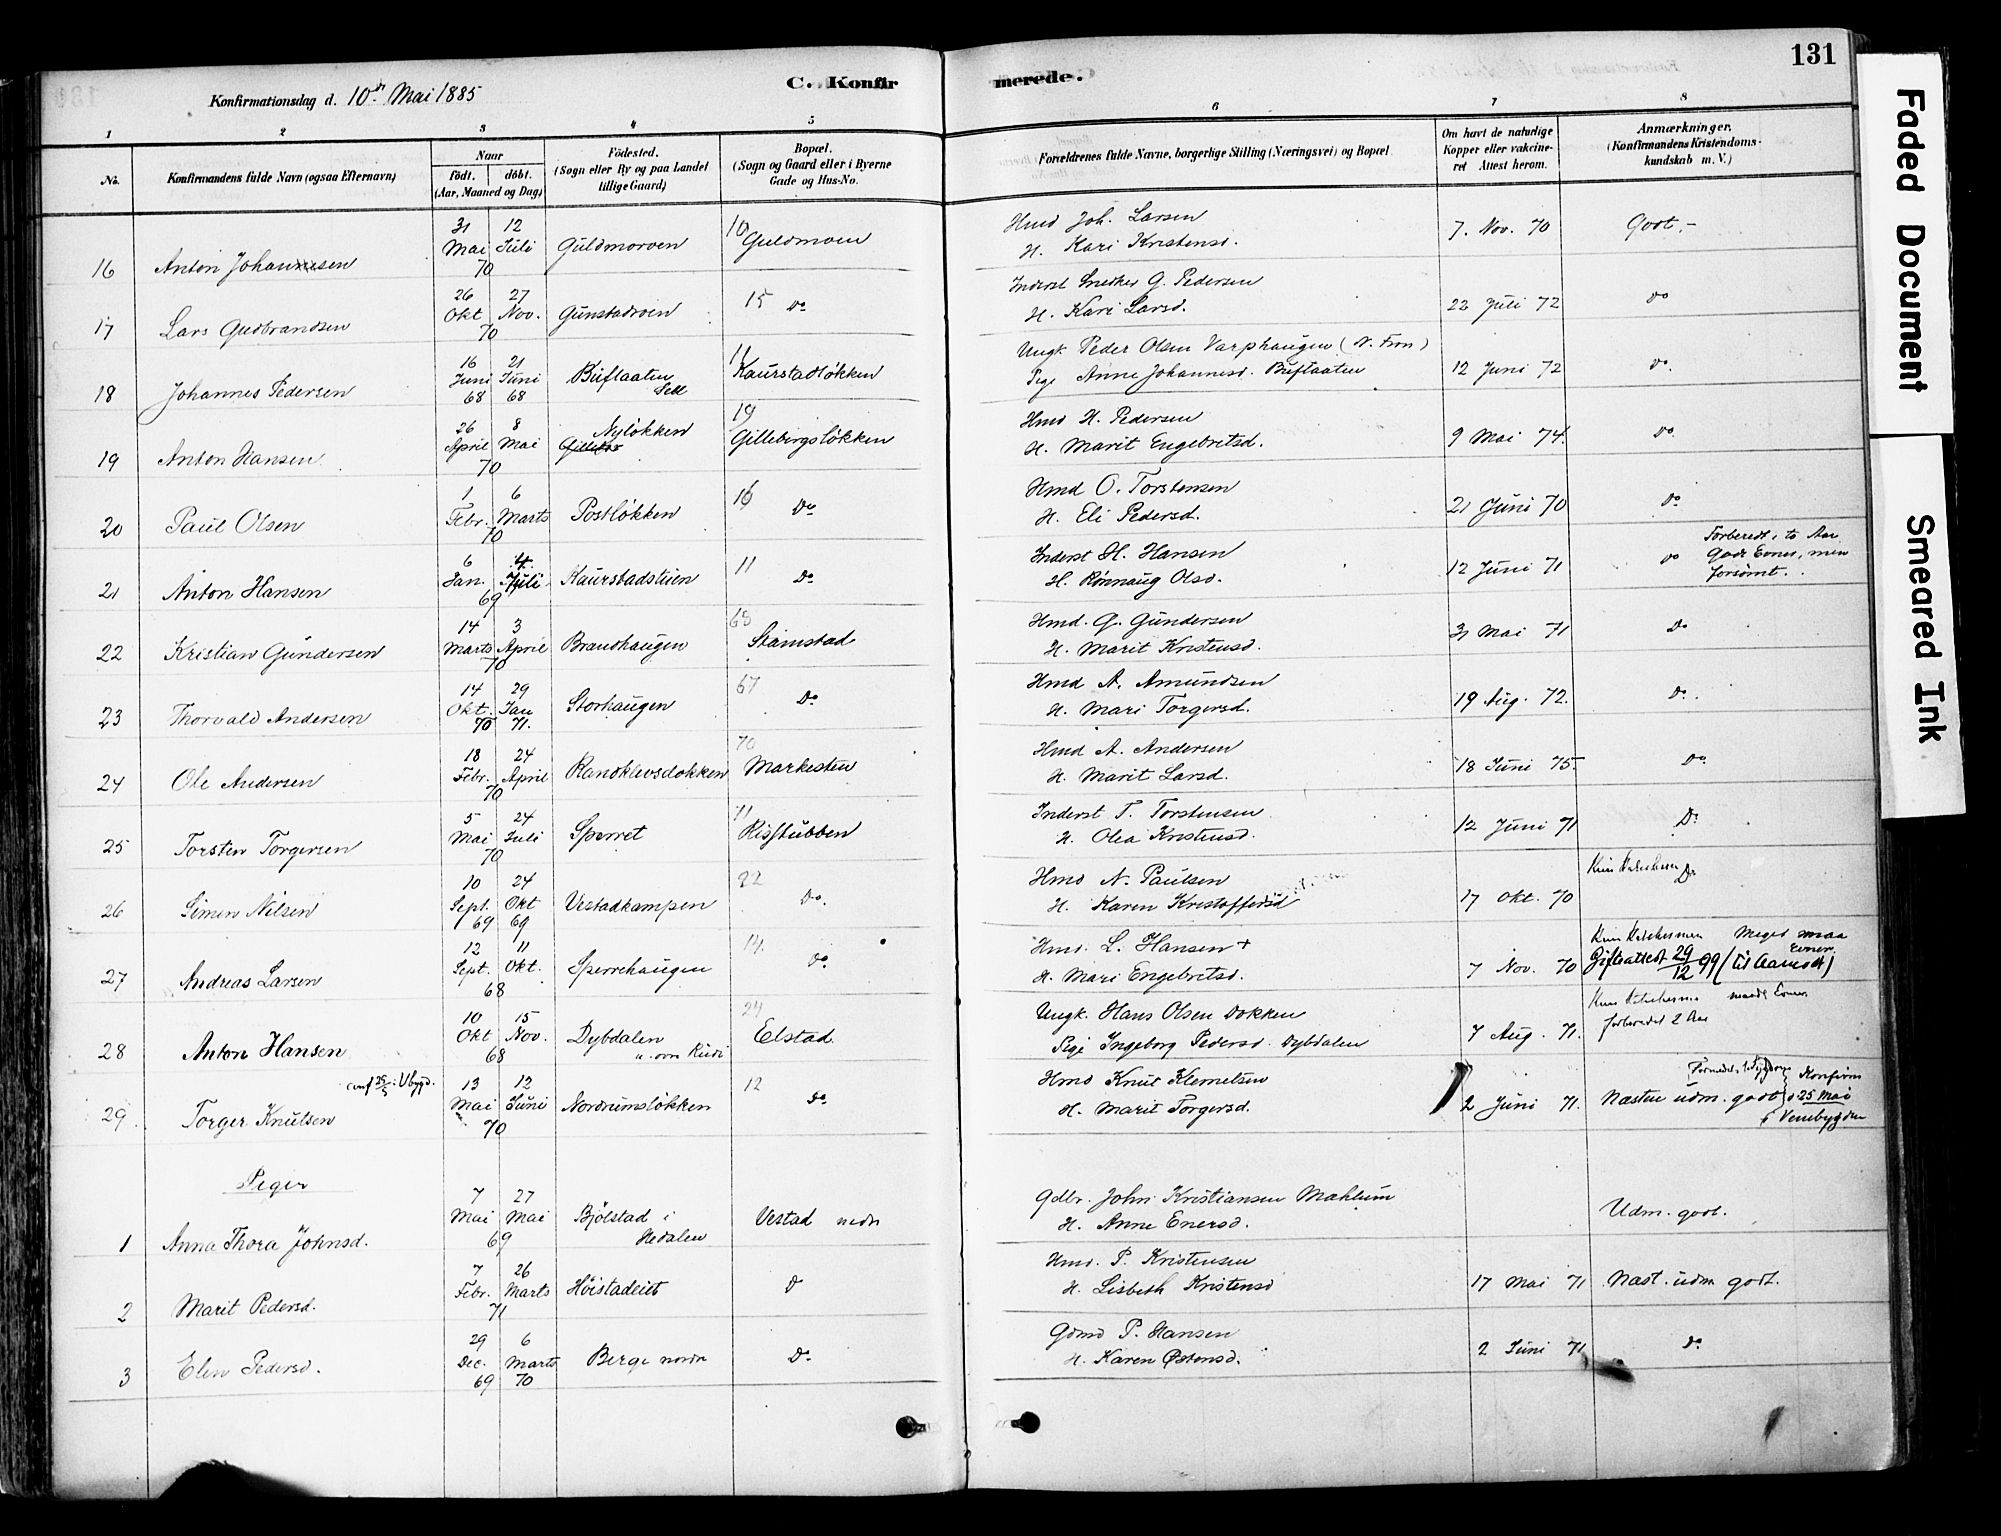 131
Faded Document
Smeared Ink
Konfirmationsdag d. 10de Mai 1885
C. Konfirmerede.
1 2 3 4 5 6 7 8
No.
Konfirmandens fulde Navn (ogsaa Efternavn)
Naar
födt. döbt.
(Aar, Maaned og Dag)
Födested.
(Sogn eller By og paa Landet
tillige Gaard)
Bopæl.
(Sogn og Gaard eller i Byerne
Gade og Hus-No.
Forældrenes fulde Navne, borgerlige Stilling (Næringsvei) og Bopæl
Om havt de naturlige
Kopper eller vakcine-
ret Attest herom.
Anmærkninger.
(Konfirmandens Kristendoms-
kundskab m. V.)
16 Anton Johansen 31 Mai 12 Juli 70 Guldmoroen 10 Guldmoen
Hmd Joh. Larsen
H. Kari Kristensd. 7. Nov. 70 Godt,-
17 Lars Gudbrandsen 26 Okt 27 Nov. 70 Gunstadroen 15 Do
Inderst Snedker G. Pedersen
H. Kari Larsd. 22 Juli 72 Do
18 Johannes Pedersen 16 Juni 68 21 Juni 68 Buflaaten Sell 11 Kaurstadløkken
Ungk. Peder Olsen Varphaugen (N. Fron)
Pige Anne Johannesd. Buflaaten 12 Juni 72 Do.
19 Anton Hansen 26 April 8 Mai 70 Nyløkken 19 Gillebergsløkken
Hmd H. Pedersen
H. Marit Engebretsd. 9 Mai 74. Do.
20 Paul Olsen 1 Febr. 6 Marts 70 Postløkken 16 Do
Hmd O. Torstensen
H. Eli Pedersd. 21 Juni 70 Do.
21 Anton Hansen 6 Jan. 4 Juli 69 Kaurstadstuen 11 Do
Inderst H. Hansen
H. Rønnaug Olsd. 12 Juni 71 Do Forberedt i to Aar
Gode Evner, men
forsømt.
22 Kristian Gundersen 14 Marts 3 April 70 Brandhaugen 65 Stamstad
Hmd. G. Gundersen
H. Marit Kristensd. 31 Mai 71 Do
23 Thorvald Andersen 14 Okt. 70 29 Jan 71. Storhaugen 67 Do
Hmd A. Amundsen
H. Mari Torgersd. 19 Aug. 72. Do.
24 Ole Andersen 18 Febr. 24 April 70 Ranklevsdokken 70 Markesten
Hmd A. Andersen
H. Marit Larsd. 18 Juni 75. Do.
25 Torsten Torgersen 5 Mai 24 Juli 70 Sperret 11 Risstubben
Inderst T. Torstensen
H. Olea Kristensd. 12 Juni 71 Do
26 Simen Nilsen 10 Sept. 69 24 Okt 69 Vestadkampen 22 Do.
Hmd N. Paulsen
H. Karen Kristoffersd 17 Okt. 70 Do
27 Andreas Larsen 12 Sept. 11 Okt. 68 Sperrehaugen 14. Do
Hmd. L. Hansen +
H. Mari Engebretsd. 7 Nov. 70 Meget smaa Evner
Gifteattest 29/12 99 (til Aamodt)
28 Anton Hansen 10 Okt 15 Nov. 68 Dybdalen 24 Elstad
Ungk. Hans Olsen Dokken
Pige Ingeborg Pedersd. Dybdalen 7 Aug. 71. maadl Evner
forberedet 2 Aar
29 Torger Knutsen conf 25/5 i Vbygd. 13 Mai 12 Juni 70 Nordrumsløkken 12 Do
Hmd Knut Klemetsen
H. Marit Torgersd. 2 Juni 71. Næsten udm. godt Konfirm
25 Mai
i Venebygden
Piger
1 Anna Thora Johnsd. 7 Mai 27 Mai 69 Bjølstad i Hedalen Vestad nedr
Gdbr. John Kristiansen Mæhlum
H. Anne Enersd. Udm. godt.
2 Marit Pedersd. 7 Febr. 26 Marts 71 Høistadeiet Do
Hmd. P. Kristensen
H. Lisbeth Kristensd 17 Mai 71 Næst. udm godt.
3 Elen Pedersd. 29 Dec. 69 6 Marts 70 Berge nordr Do.
Gdmd P. Hansen
H. Karen Østensd. 2 Juni 71 Do.